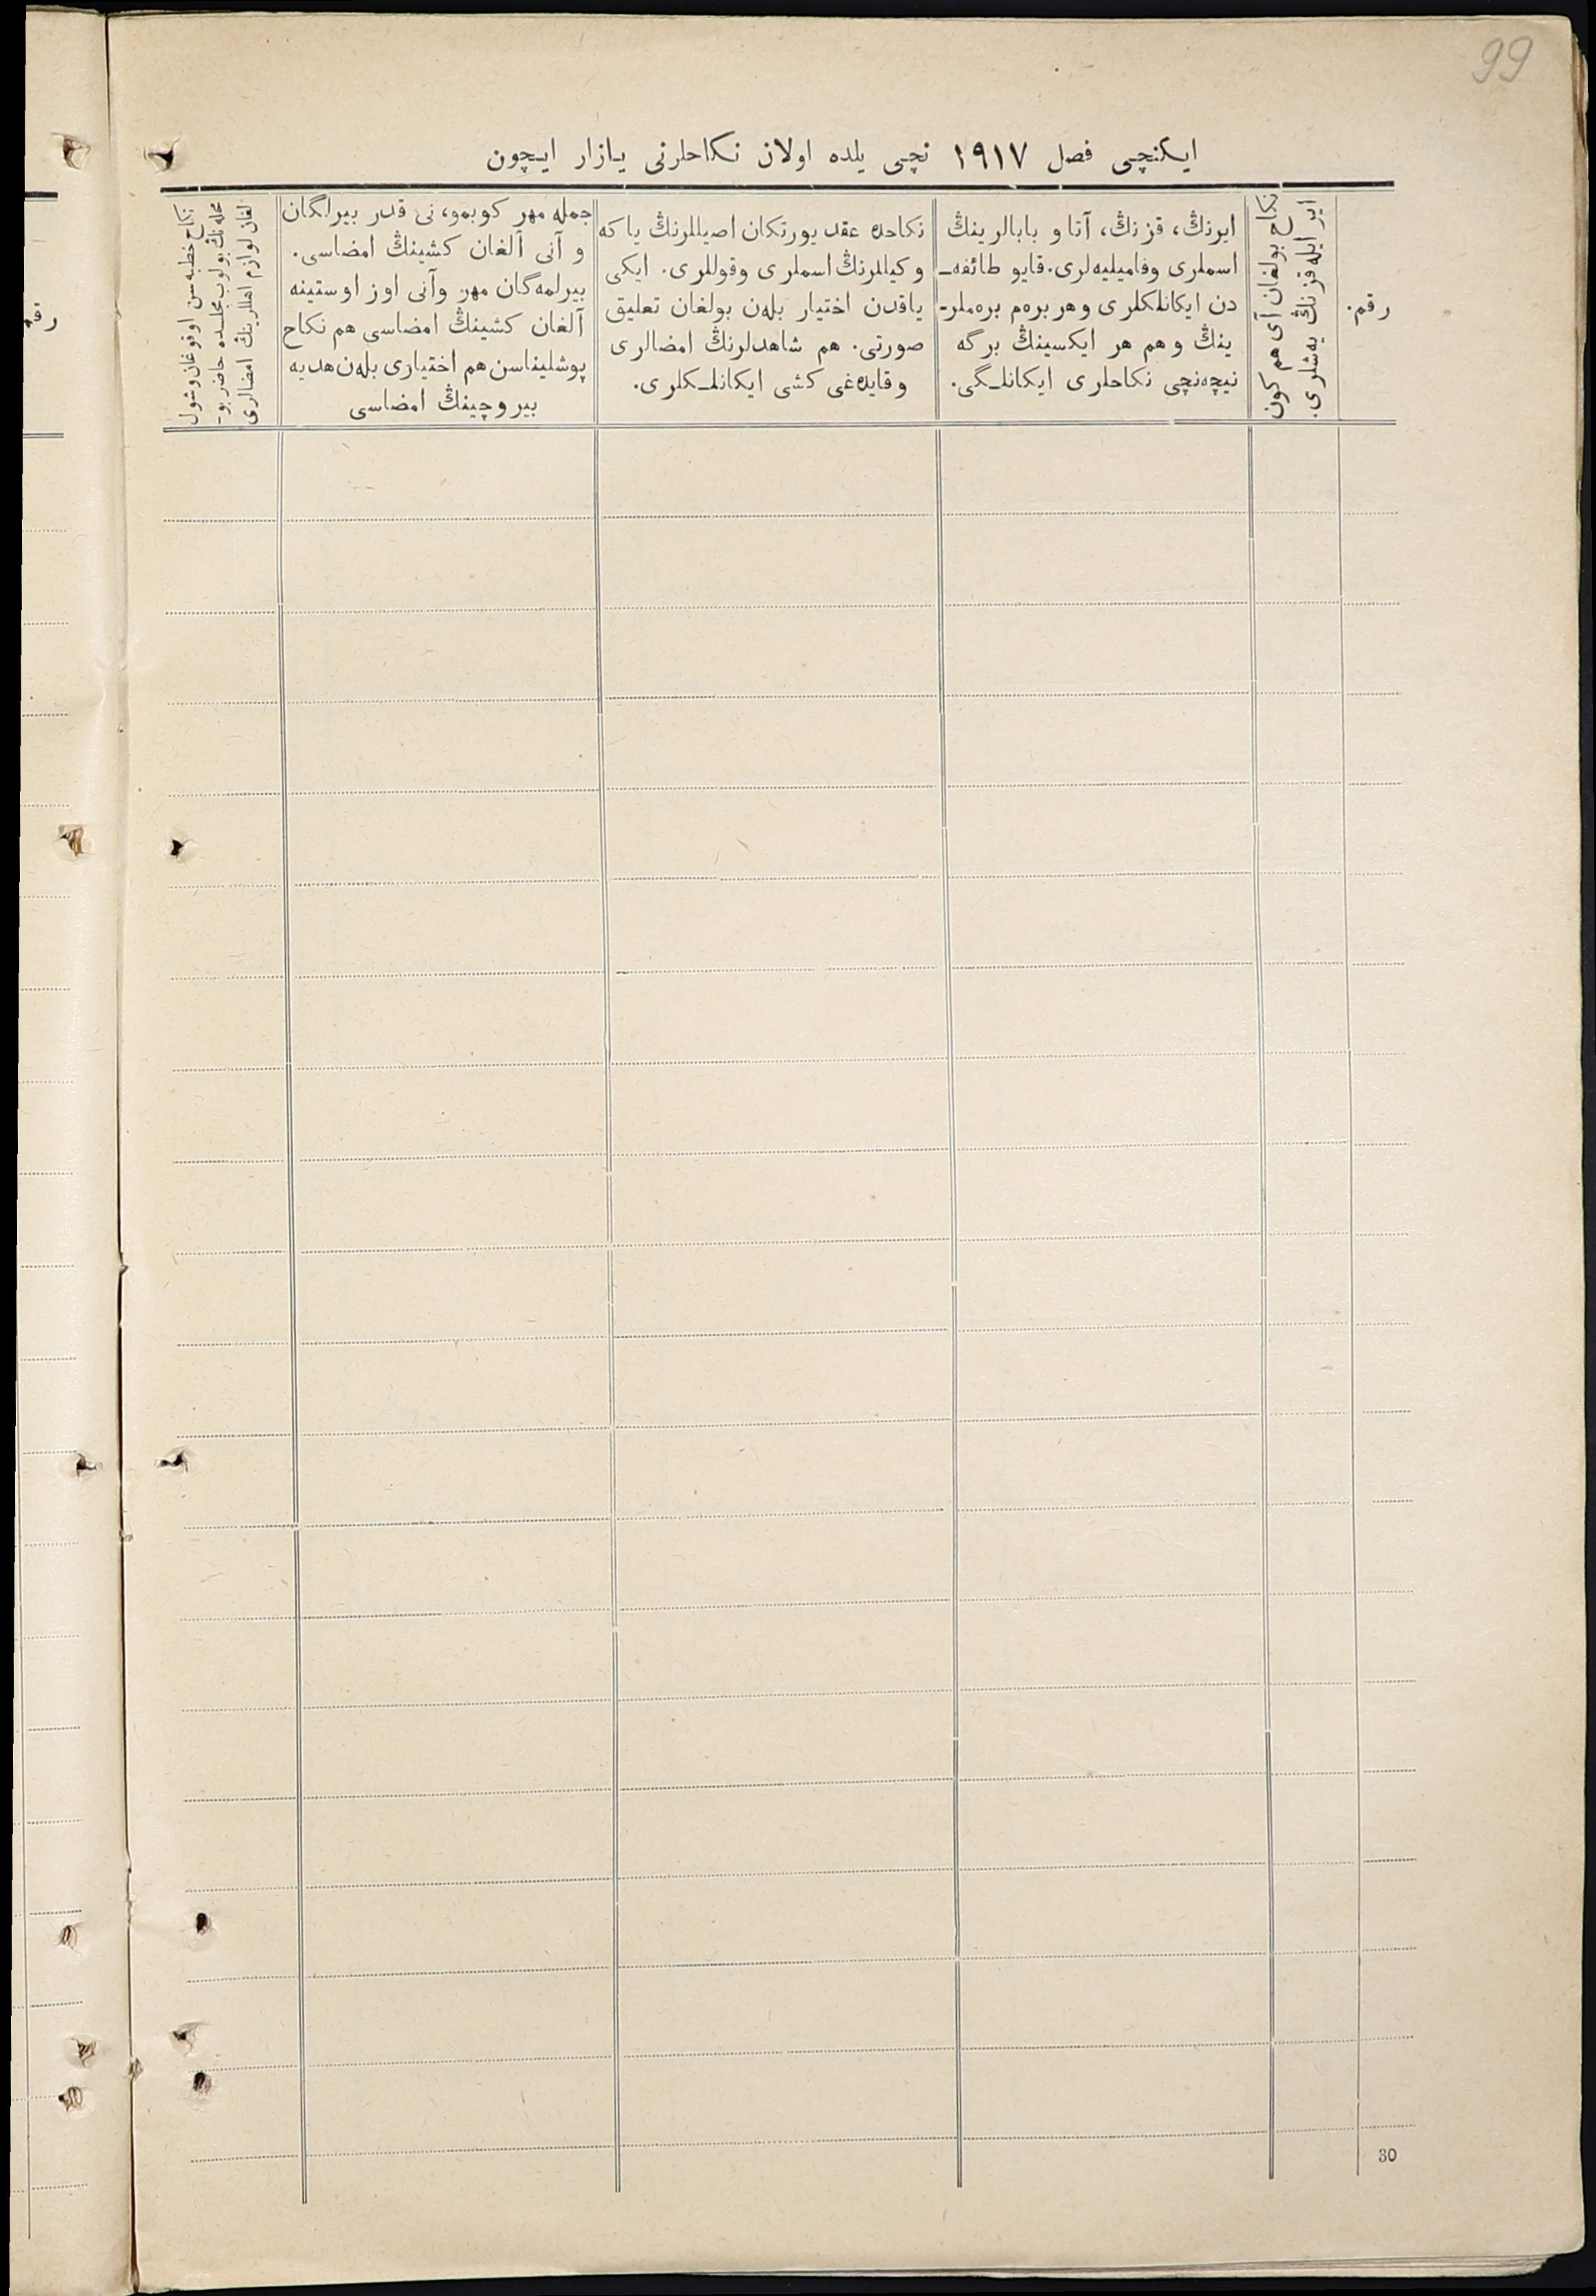 99
ایکنچی فصل ۱۹۱۷ نچی یلده اولان نکاحلرنی یازار ایچون
رقم.
نکاح بولغان آی هم کون
ایر ایله قزنڭ یه‌شلری.
ایرنڭ، قزنڭ، آتا و بابالرینڭ
اسملری وفامیلیه‌لری. قایو طائفه‌ـ
دن ایکانلکلری وهر بره‌م بره‌ملرـ
ینڭ وهم هر ایکسینڭ برگه
نیچه‌نچی نکاحلری ایکانلـگی.
نکاحده عقد یورتکان اصیللرنڭ یا که
وکیللرنڭ اسملری وقوللری. ایکی
یاقدن اختیار بلەن بولغان تعلیق
صورتی. هم شاهدلرنڭ امضالری
وقایده‌غی کشی ایکانلـکلری.
جمله مهر کوبمو، نی قدر بیرلگان
و آنی آلغان کشینڭ امضاسی.
بیرلمه‌گان مهر وآنی اوز اوستینه
آلغان کشینڭ امضاسی هم نکاح
پوشلیناسن هم اختیاری بلەن هدیه
بیروچینڭ امضاسی
نکاح خطبه‌سن اوقوغان وشول
محله‌نڭ بولوب مجلسده حاضر بوـ
لغان لوازم اهللرینڭ امضالری
رقم
30